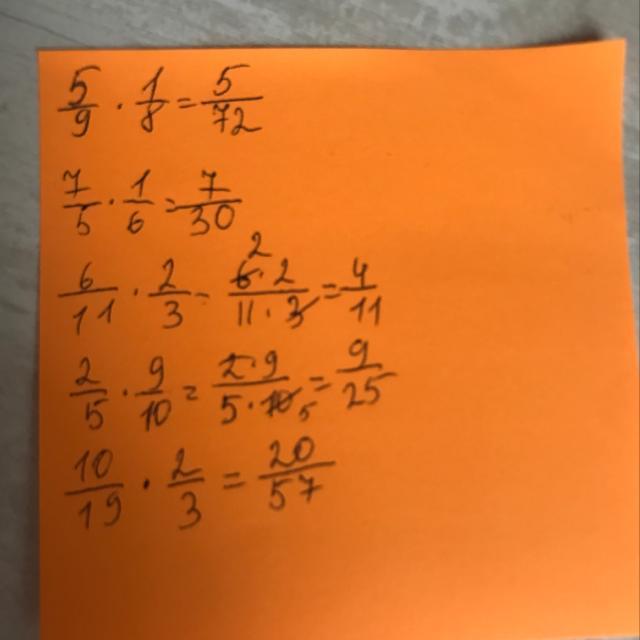 5/9 · 1/8 = 5/72
7/5 · 1/6 = 7/30
6/11 · 2/3 = 6·2/11·3 2 = 4/11
2/5 · 9/10 = 2·9/5·10 5 = 9/25
10/19 · 2/3 = 20/57